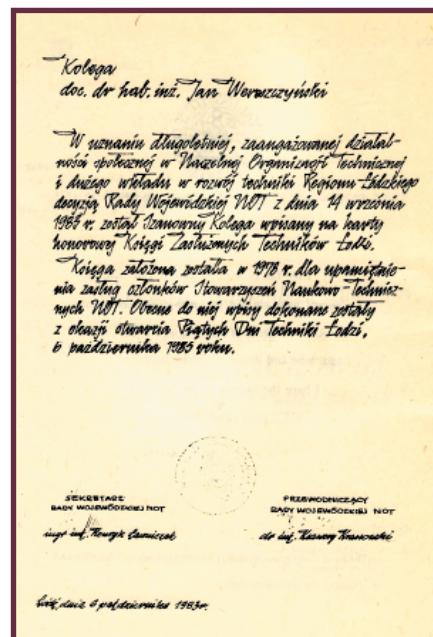 Kolega
doc. dr hab. inż. Jan Wereszczyński
W uznaniu długoletniej, zaangażowanej działal-
ności społecznej w Naczelnej Organizacji Technicznej
i dużego wkładu w rozwój techniki Regionu Łódzkiego
decyzją Rady Wojewódzkiej NOT z dnia 14 września
1983 r. został Szanowny Kolega wpisany na karty
honorowej Księgi Zasłużonych Techników Łodzi.
Księga założona została w 1978 r. dla upamiętnie-
nia zasług członków Stowarzyszeń Naukowo-Technicz-
nych NOT. Obecne do niej wpisy dokonane zostały
z okazji otwarcia Piątych Dni Techniki Łodzi,
6 października 1983 roku.
SEKRETARZ
RADY WOJEWÓDZKIEJ NOT
mgr inż. Henryk
PRZEWODNICZĄCY
RADY WOJEWÓDZKIEJ NOT
dr inż. Ksawery Krasowski
Łódź, dnia 6 października 1983 r.